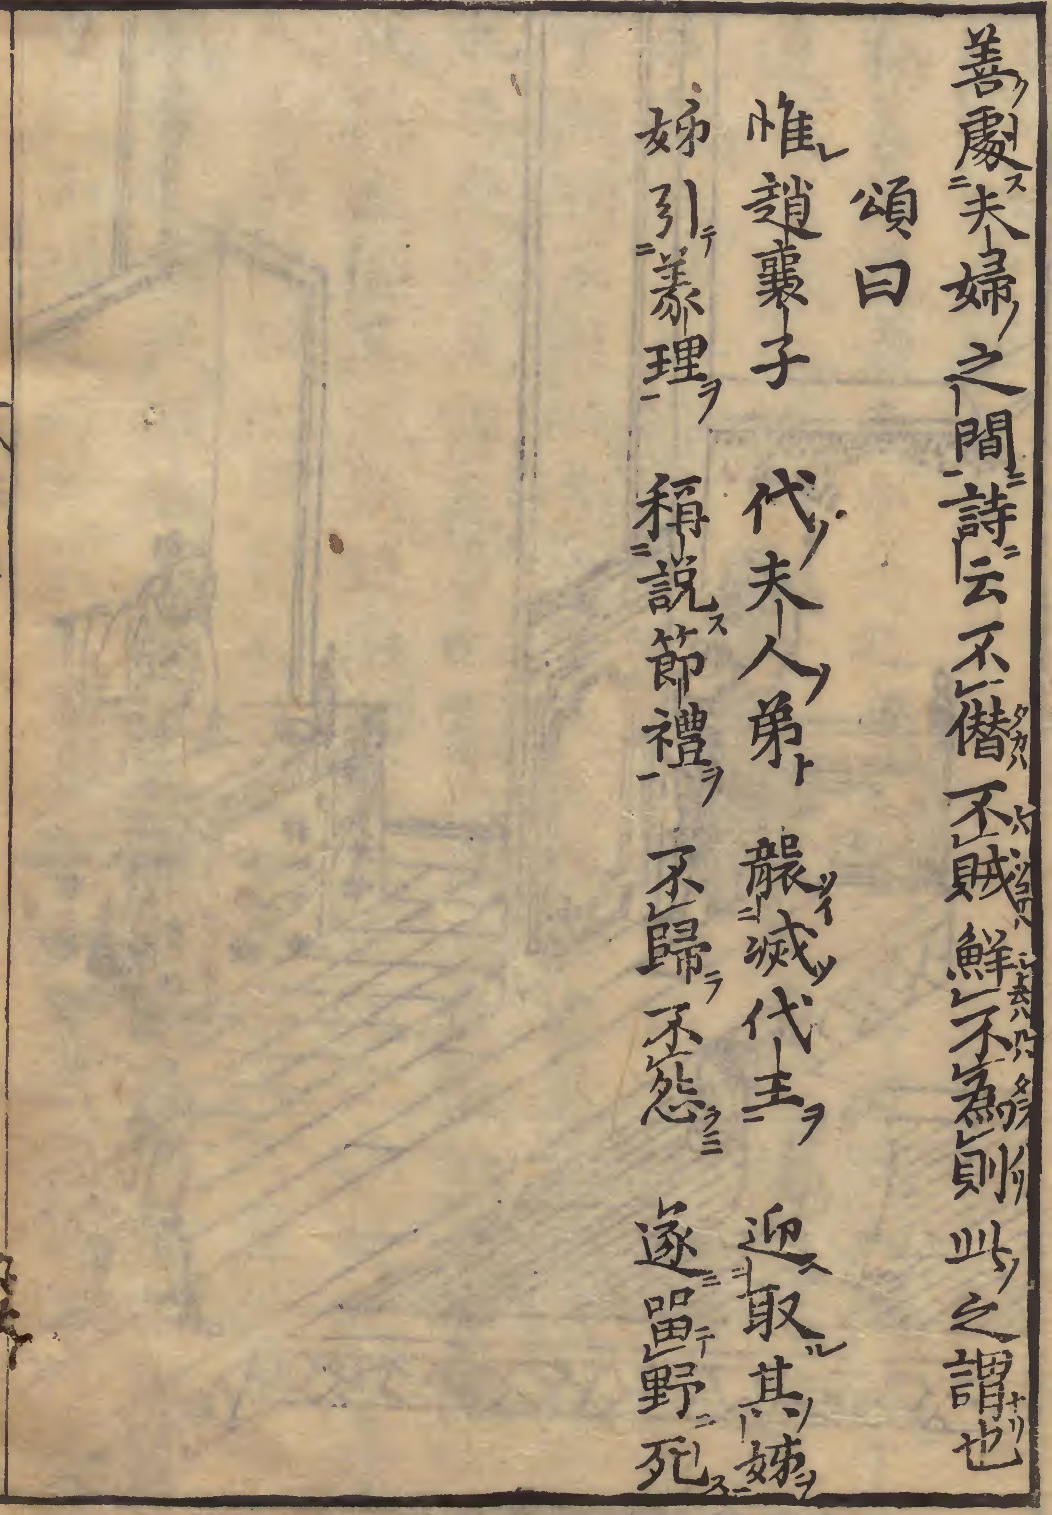 善處夫婦之間詩云不僭不賊鮮不為則此之謂也
頌曰
惟趙襄子 代夫人弟 襲滅代主 迎取其姊
姊引義理 稱說節禮 不歸不怨 遂留野死